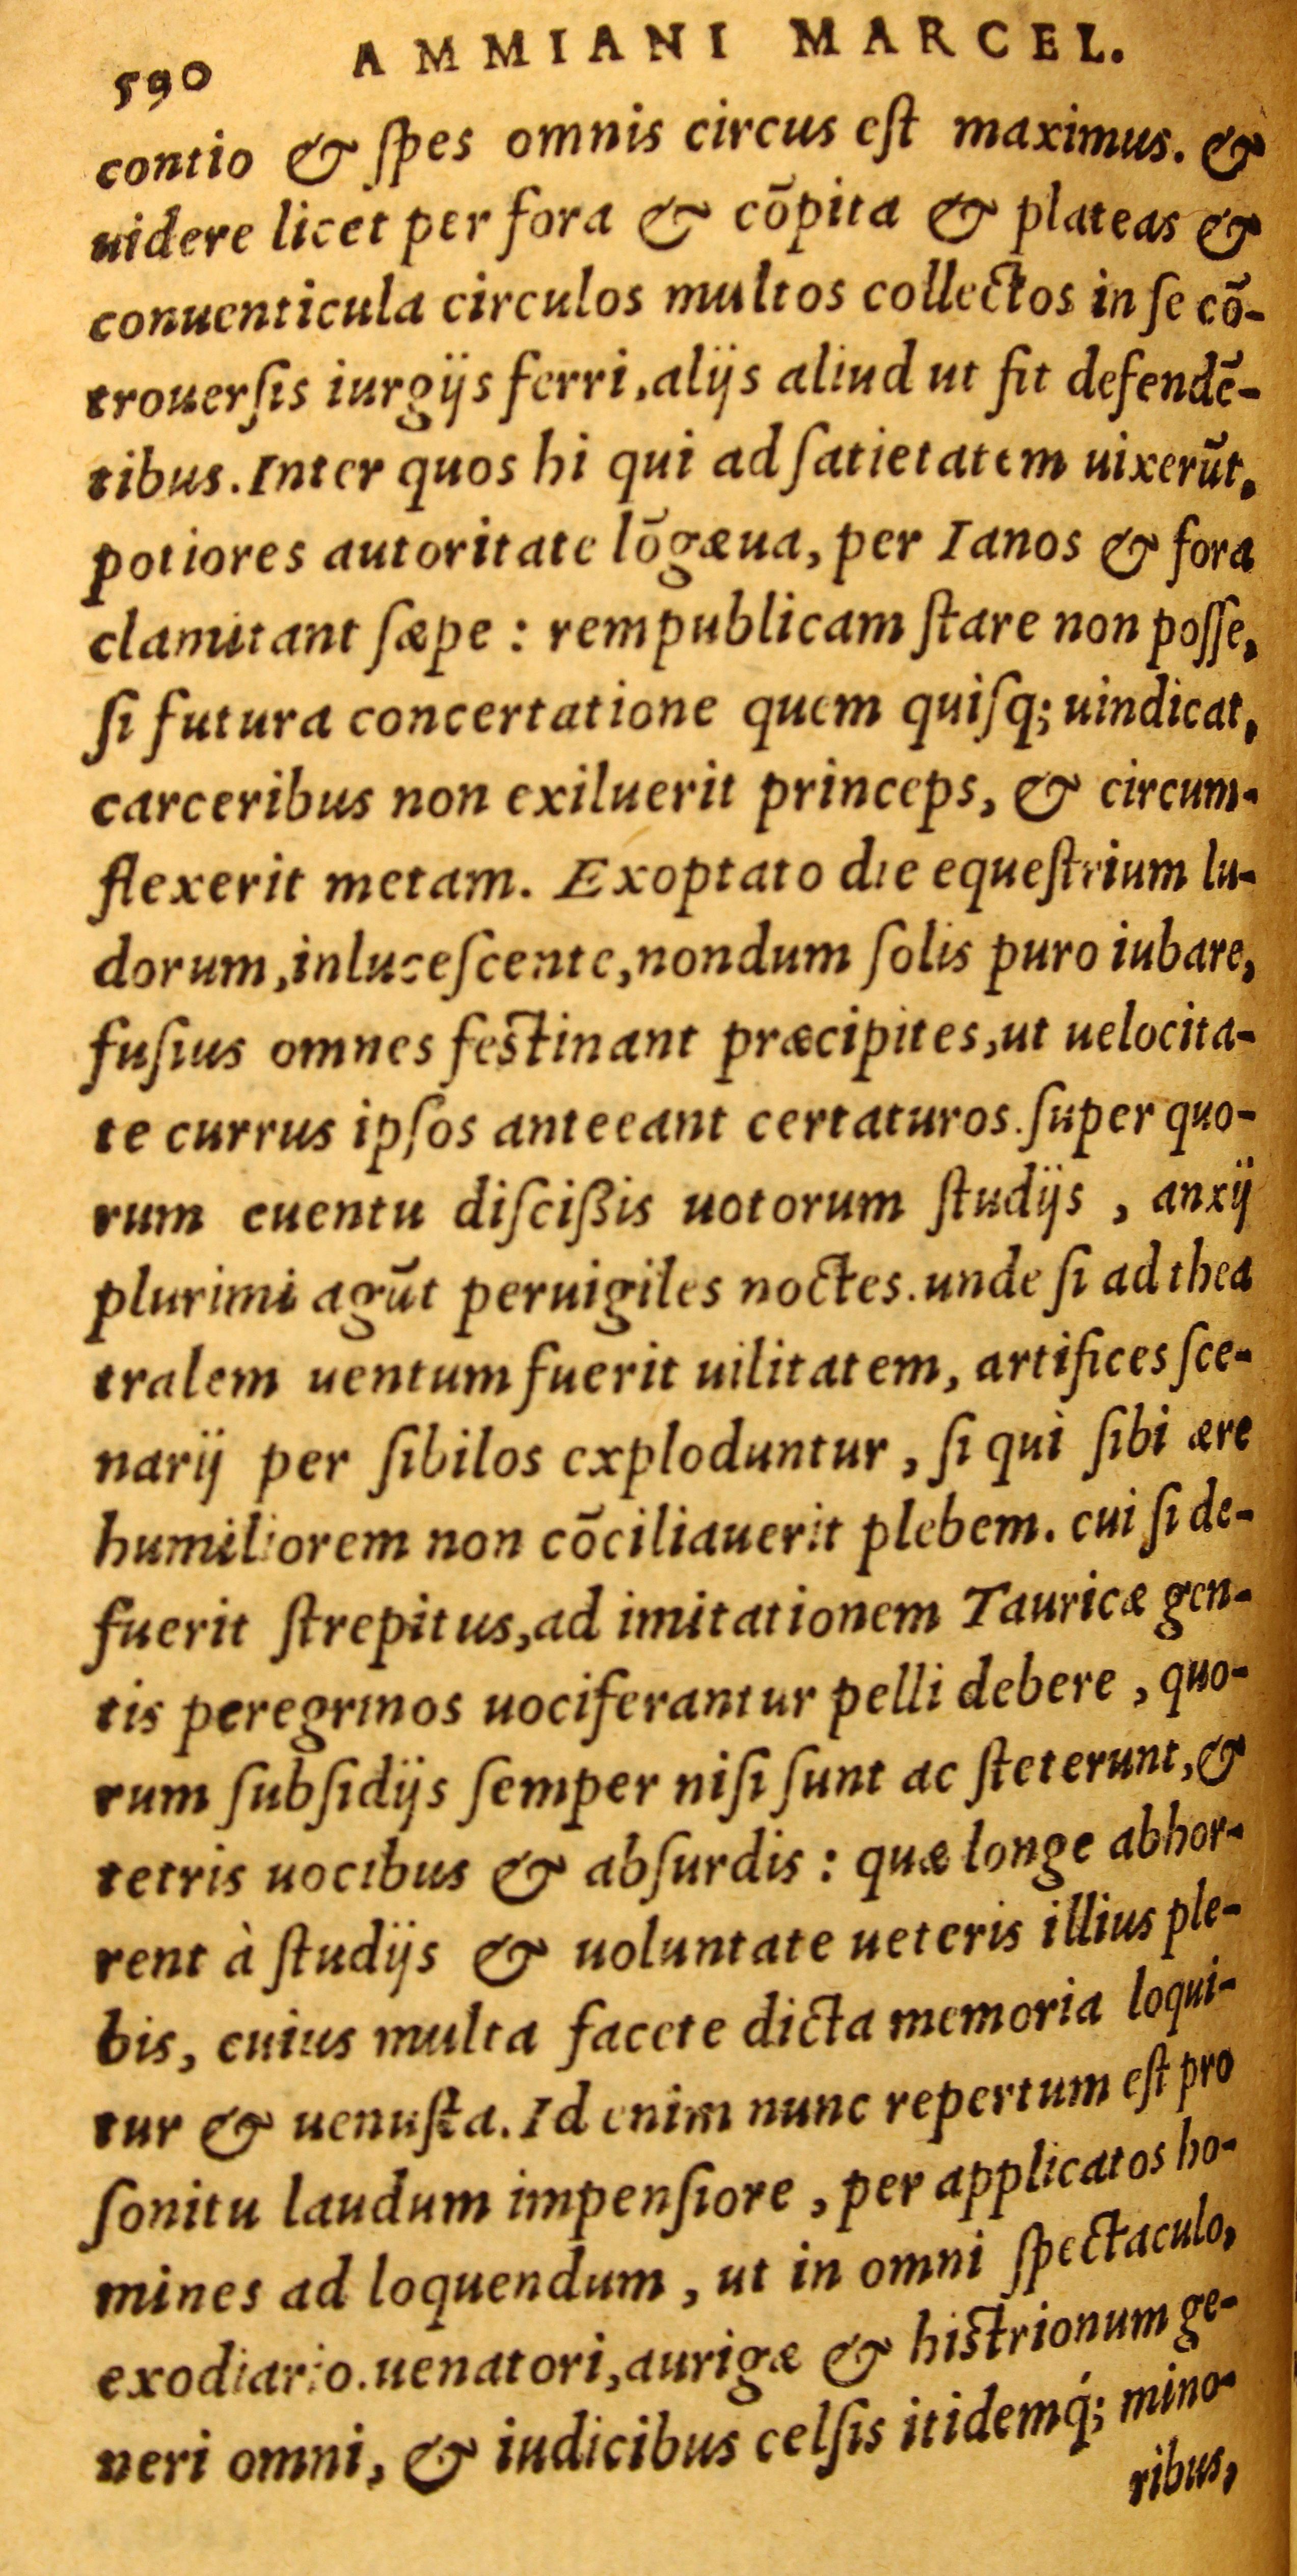 590 AMMIANI MARCEL.
contio & ſpes omnis circus eſt maximus. &
uidere licet per fora & cōpita & plateas &
conuenticula circulos multos collectos in ſe cō-
trouerſis iurgijs ferri, alijs aliud ut fit defendē-
tibus. Inter quos hi qui ad ſatietatem uixerūt,
potiores autoritate lōgæua, per Ianos & fora
clamitant ſæpe : rempublicam ſtare non poſſe,
ſi futura concertatione quem quiſq; uindicat,
carceribus non exiluerit princeps, & circum-
flexerit metam. Exoptato die equeſtrium lu-
dorum, inluceſcente, nondum ſolis puro iubare,
fuſius omnes feſtinant præcipites, ut uelocita-
te currus ipſos anteeant certaturos. ſuper quo-
rum euentu diſcißis uotorum ſtudijs , anxij
plurimi agūt peruigiles noctes. unde ſi ad thea
tralem uentum fuerit uilitatem, artifices ſce-
narij per ſibilos exploduntur , ſi qui ſibi ære
humiliorem non cōciliauerit plebem. cui ſi de-
fuerit ſtrepitus, ad imitationem Tauricæ gen-
tis peregrinos uociferantur pelli debere , quo-
rum ſubſidijs ſemper niſi ſunt ac ſteterunt, &
tetris uocibus & abſurdis : quæ longe abhor-
rent à ſtudijs & uoluntate ueteris illius ple-
bis, cuius multa facete dicta memoria loqui-
tur & uenuſta. Id enim nunc repertum eſt pro
ſonitu laudum impenſiore , per applicatos ho-
mines ad loquendum , ut in omni ſpectaculo,
exodiario. uenatori, aurigæ & hiſtrionum ge-
neri omni, & iudicibus celſis itidemq́; mino-
ribus,